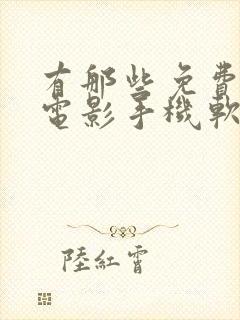 有那些免費
電影手機軟
陸紅霄